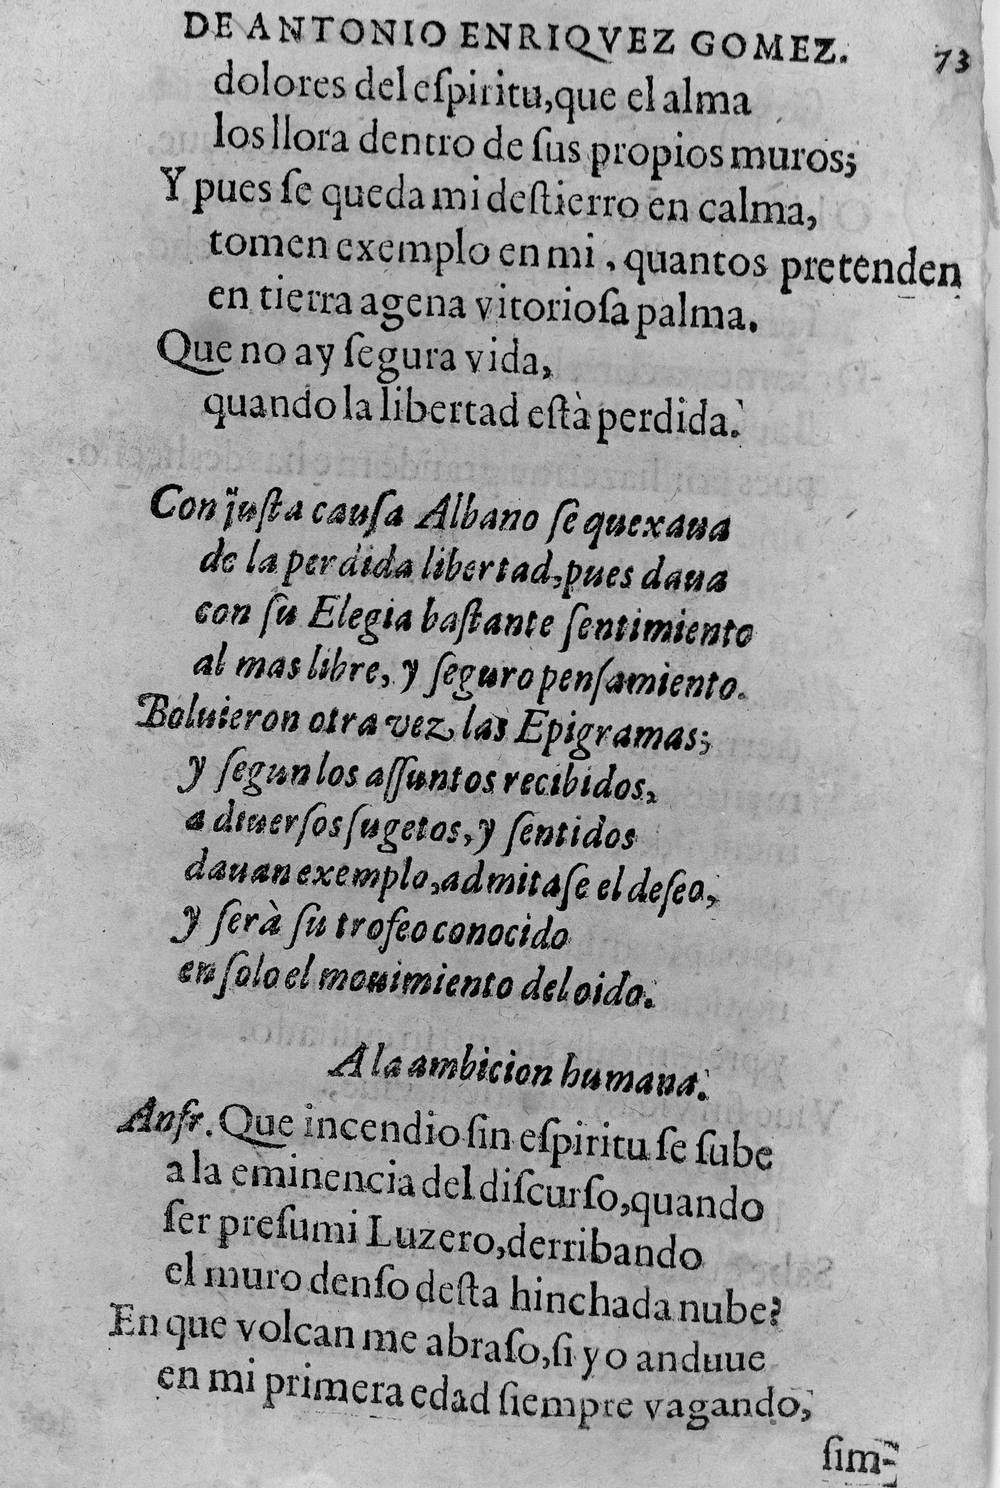 DE ANTONIO ENRIQVEZ GOMEZ. 73
dolores del eſpiritu,que el alma
los llora dentro de ſus propios muros;
Y pues ſe queda mi deſtierro en calma,
tomen exemplo en mi , quantos pretenden
en tierra agena vitorioſa palma.
Que no ay ſegura vida,
quando la libertad eſtà perdida.
Con juſta cauſa Albano ſe quexaua
de la perdida libertad,pues daua
con ſu Elegia baſtante ſentimiento
al mas libre, y ſeguro penſamiento.
Boluieron otra vez las Epigramas;
y ſegun los aſſuntos recibidos,
a diuerſos ſugetos, y ſentidos
dauan exemplo,admitaſe el deſeo,
y ſerà ſu trofeo conocido
en ſolo el mouimiento del oido.
A la ambicion humana.
Anfr. Que incendio ſin eſpiritu ſe ſube
a la eminencia del diſcurſo,quando
ſer preſumi Luzero,derribando
el muro denſo deſta hinchada nube?
En que volcan me abraſo,ſi yo anduue
en mi primera edad ſiempre vagando,
ſim-